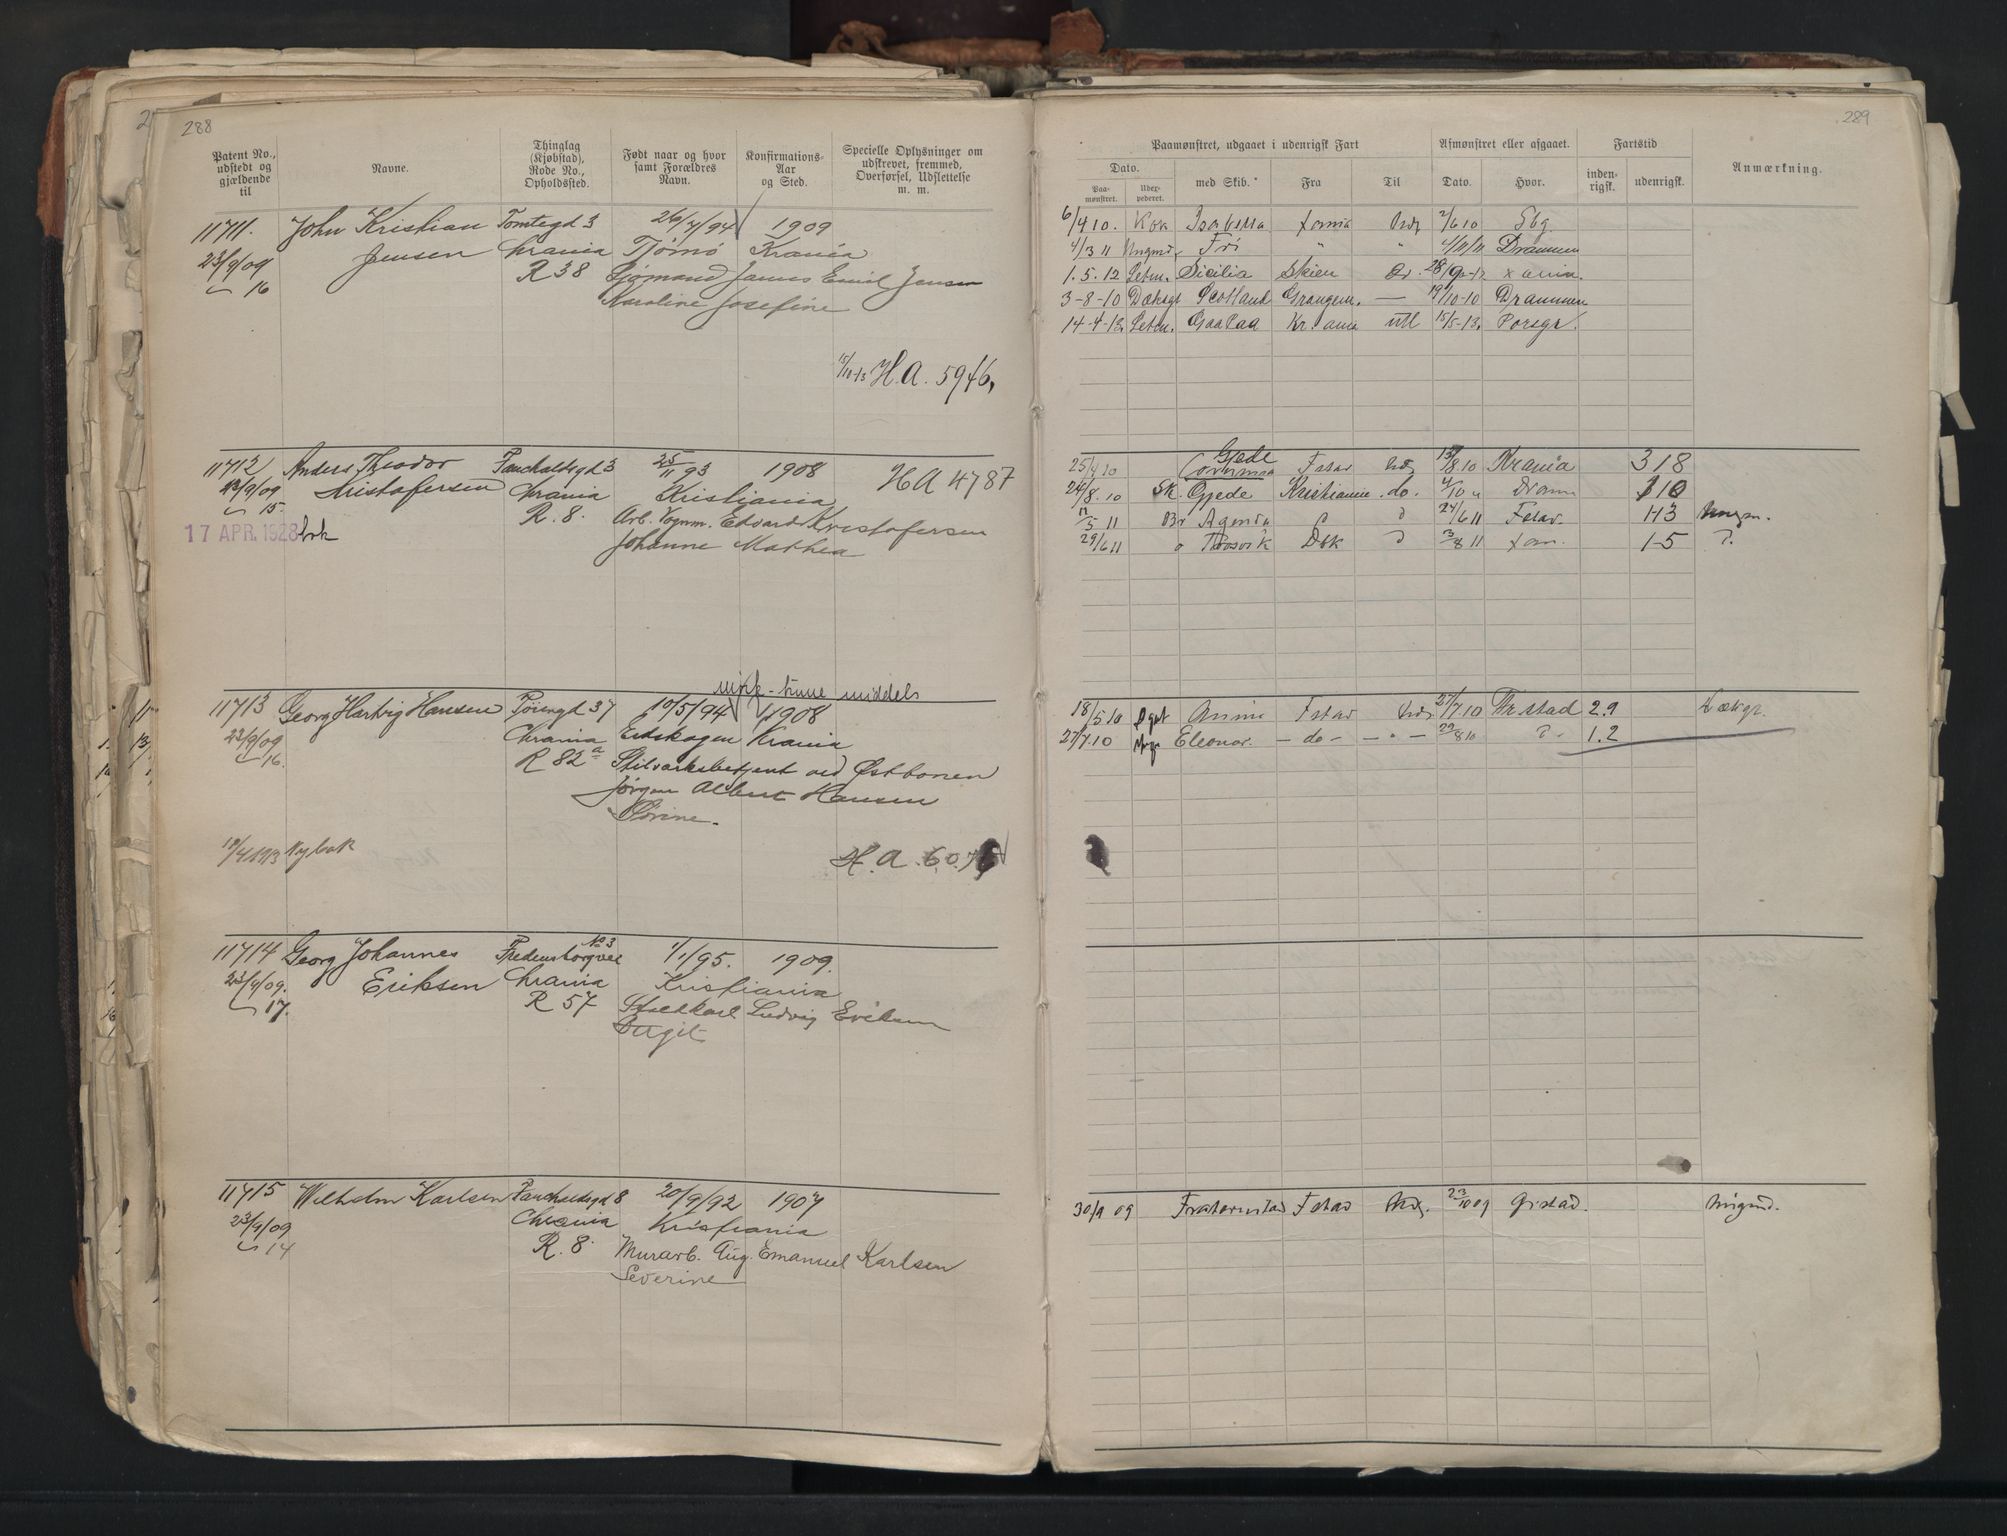 288
Patent No., udstedt og gjældende til
Navne.
Thinglag (Kjøbstad), Rode No., Opholdssted.
Født naar og hvor samt Forældres Navn.
Konfirmations-Aar og Sted.
Specielle Oplysninger om udskrevet, fremmed, Overførsel, Udslettelse m. m.
11711. John Kristian Tomtegd 3 26/7/94 1909
23/9/09 Jensen Chrania Tjømø Krania
16 R 38 Sjømand James Emil Jensen
Karoline Josefine
15/10-13 H.A. 5946,
11712 Anders Theodor 25/11 93 1908 HA 4787
23/9/09 Kristofersen Chrania Kristiania
15. R. 8. Arb. Vognm. Edvard Kristofersen
17 APR. 1928 bok Johanne Mathea
mørk - brune middels
11713 Georg Hartvig Hansen Tøiengd 37 10/5/94 1908
23/9/09 Chrania Eidskogen Krania
16. R 82a ved Østbanen
Jørgen Albert Hansen
Sørine.
18/4 1913 Ny bok H.A. 60
No 3
11714 Georg Johannes Fredensborgvei 1/1/95. 1909.
23/9/09. Eriksen Chrania Kristiania
17. R 57 Staldkarl Ludvig Eriksen
Birgit
11715 Wilhelm Karlsen 20/9/92 1907
23/9/09 Chrania Kristiania
14 R. 8. Murarb. Aug. Emanuel Karlsen
Severine
289
Paamønstret, udgaaet i udenrigsk Fart
Afmønstret eller afgaaet.
Fartstid
Anmærkning.
Dato.
Paa-mønstret.
Uder-pederet.
med Skib.
Fra
Til
Dato.
Hvor.
inden-rigsk.
udenrigsk.
6/4 10. Kok Isabella Xania Urdg 2/6 10 Sbg.
4/3 11 Ungmd. Fri " " 4/11 11 Drammen
1.5.12 Letm. Sicilia Skien 28/9-12 Xania.
3-8-10 Dæksgt Scotland Grangem. — 19/10-10 Drammen
14-4-13. Letm. Gaa Paa Kr.ania Utl 15/5-13. Porsgr.
Gjede
25/4 10 Fstad Urdg 13/8 10 Krania 318
24/8.10 Gjede Kristiania do. 4/10 " Dramn 110
11/5 11 Agenda 24/6 11 Fstad. 1-13 Ungm.
29/6 11 Thorsvik 3/8 11 Xan. 1-5
18/5 10 Dgut Fstad Urdg 27/7 10 Frstad 2.9 Dæksgt.
27/7.10 Eleonor. - do - - " - 29/8 10 1.2
30/9 09 Fraternitas Fstad Urdg. 23/10 09 Gistad. Ungmd.